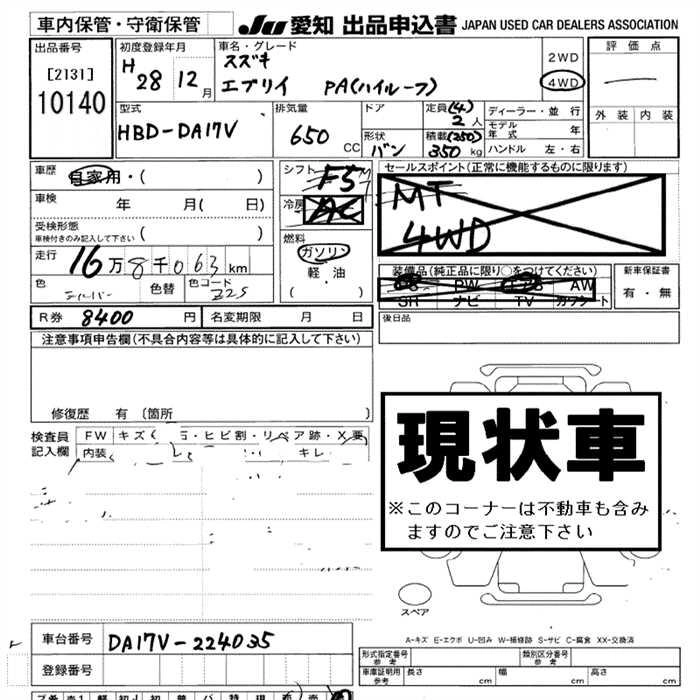 車内保管・守衛保管 JU 愛知 出品申込書 JAPAN USED CAR DEALERS ASSOCIATION
出品番号 初度登録年月 車名・グレード 評価点
[2131] H 28 12月 スズキ 2WD
10140 エブリイ PA(ハイルーフ) 4WD
型式 排気量 ドア 定員(4) ディーラー・並行 外装 内装
2人 モデル年式 年
HBD-DA17V 650CC 形状 積載(250)
バン 350kg ハンドル 左・右
車歴 自家用・( ) シフト F5 セールスポイント(正常に機能するものに限ります)
車検 年 月( 日) 冷房 AC MT
受検形態 ( ) 4WD
車検付きのみ記入して下さい 燃料
走行 16万8千063km ガソリン
軽・油 装備品(純正品に限り○をつけてください) 新車保証書
色 シルバー 色替 色コード Z2S ( ) PS PW エアB AW 有・無
SR ナビ TV カワシート
R券 8400円 名変期限 月 日 後日品
注意事項申告欄(不具合内容等は具体的に記入して下さい)
修復歴 有 (箇所 )
検査員 FW キズ 石・ヒビ割・リペア跡・X要
記入欄 内装 キレ
現状車
※このコーナーは不動車も含み
ますのでご注意下さい
スペア
A-キズ E-エクボ U-凹み W-補修跡 S-サビ C-腐食 XX-交換済
車台番号 DA17V-224035
形式指定番号 参考 類別区分番号 参考
登録番号 車庫証明用 参考 長さ cm 幅 cm 高さ cm